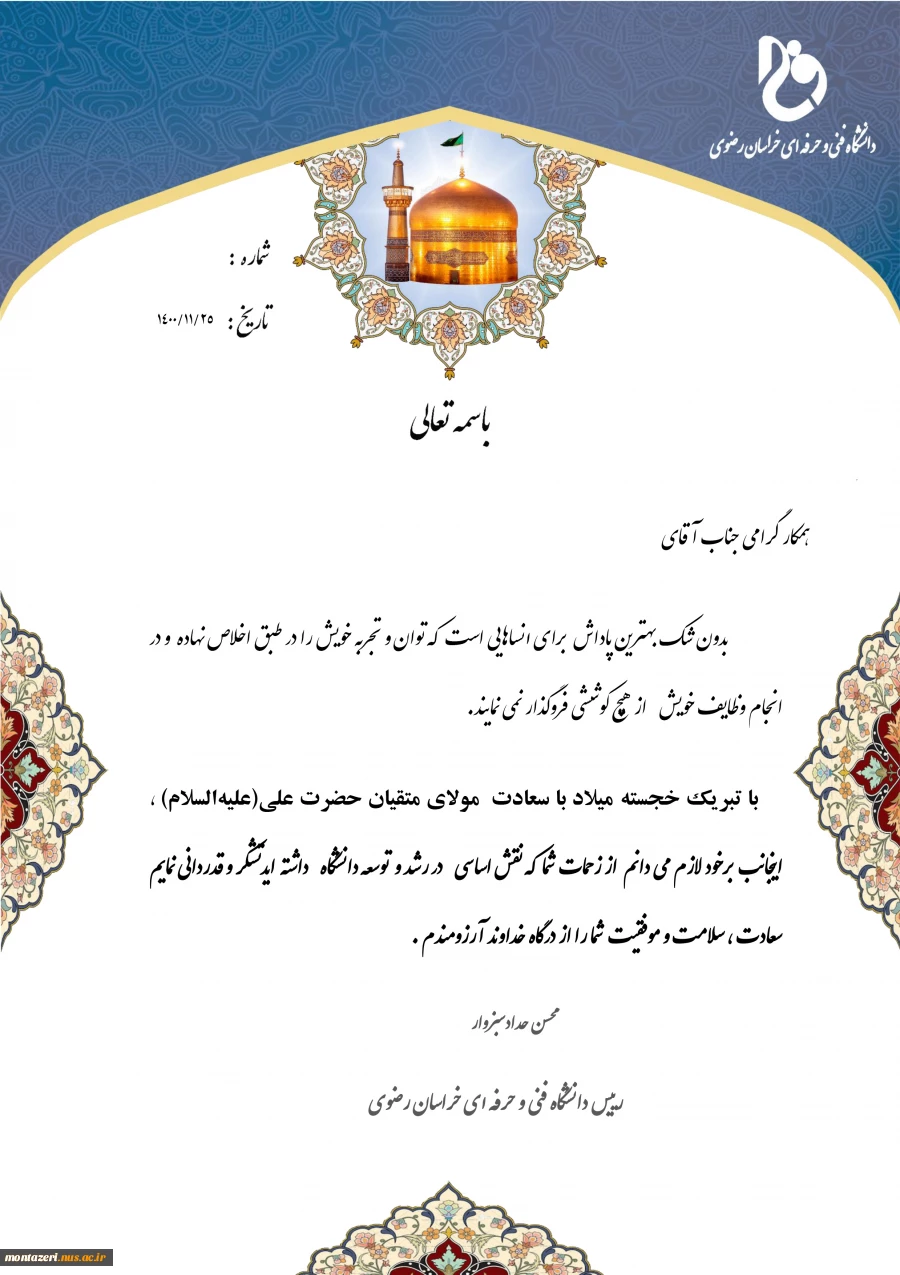 دانشگاه فنی و حرفه ای خراسان رضوی
شماره :
تاریخ : ۱٤۰۰/۱۱/۲٥
باسمه تعالی
همکار گرامی جناب آقای
بدون شک بهترین پاداش برای انسانهایی است که توان و تجربه خویش را در طبق اخلاص نهاده و در
انجام وظایف خویش از هیچ کوششی فروگذار نمی نمایند.
با تبریک خجسته میلاد با سعادت مولای متقیان حضرت علی(علیه‌السلام) ،
اینجانب برخود لازم می دانم از زحمات شما که نقش اساسی در رشد و توسعه دانشگاه داشته اید تشکر و قدردانی نمایم
سعادت ، سلامت و موفقیت شما را از درگاه خداوند آرزومندم .
محسن حدادسبزوار
رییس دانشگاه فنی و حرفه ای خراسان رضوی
montazeri.nus.ac.ir